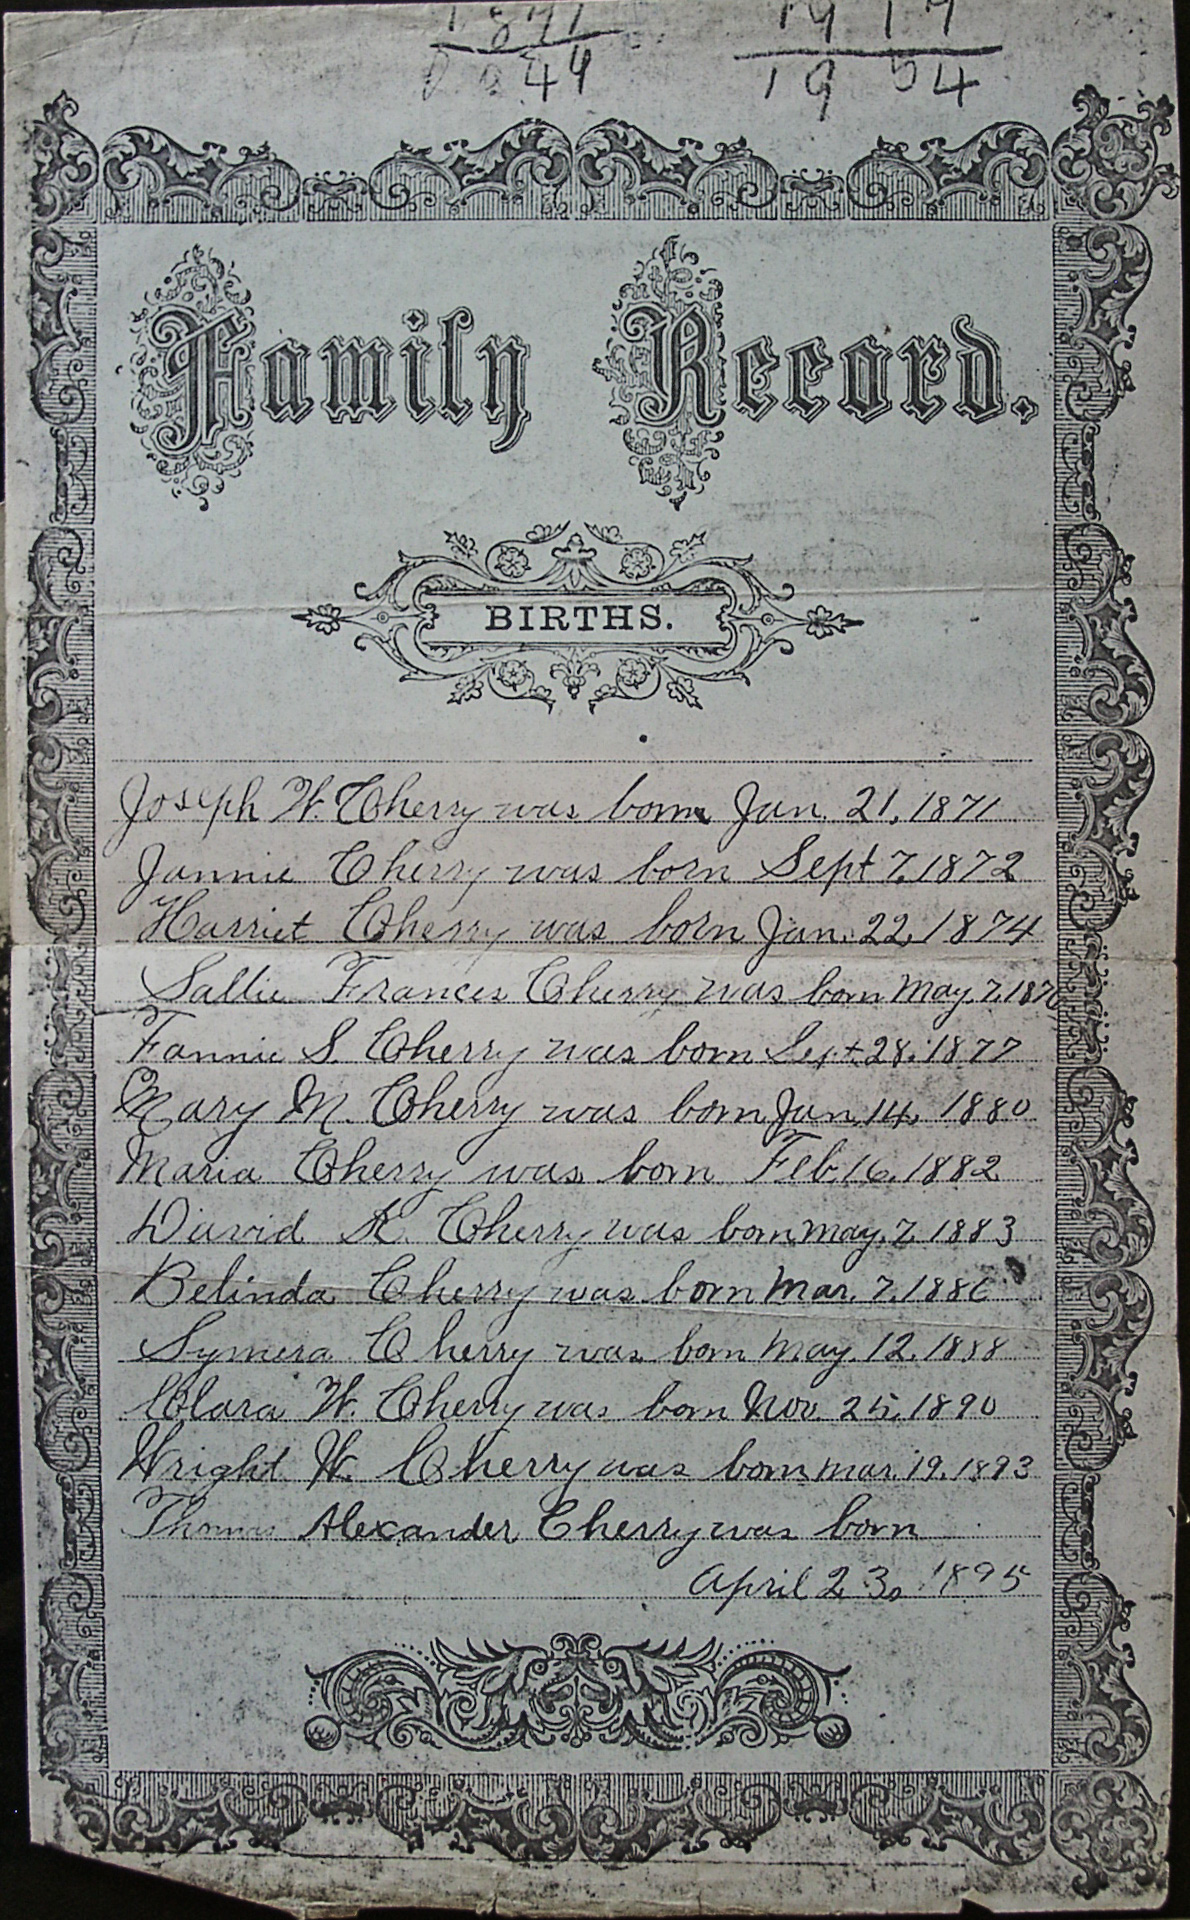 1871 1917
44 19 54
Family Record.
BIRTHS.
Joseph W. Cherry was born Jan. 21, 1871
Jannie Cherry was born Sept 7, 1872
Harriet Cherry was born Jan. 22, 1874
Sallie Frances Cherry was born May. 7, 1876
Fannie S. Cherry was born Sept 28, 1877
Mary M. Cherry was born Jan, 14, 1880
Maria Cherry was born Feb. 16, 1882
David R. Cherry was born May. 7, 1883
Belinda Cherry was born Mar. 7, 1886
Symera Cherry was born May. 12, 1888
Clara W. Cherry was born Nov. 25, 1890
Wright W. Cherry was born Mar. 19, 1893
Thomas Alexander Cherry was born
April 23, 1895